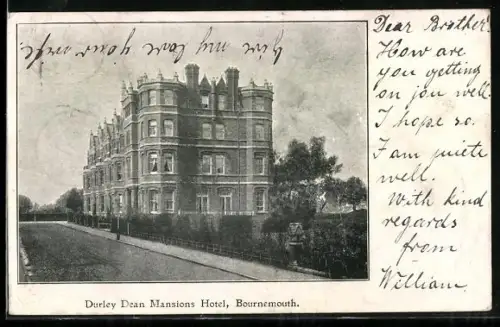 Give my love to your wife
Dear Brother.
How are
you getting
on jou well.
I hope so.
I am quiete
well.
With kind
regards
from
William.
Durley Dean Mansions Hotel, Bournemouth.